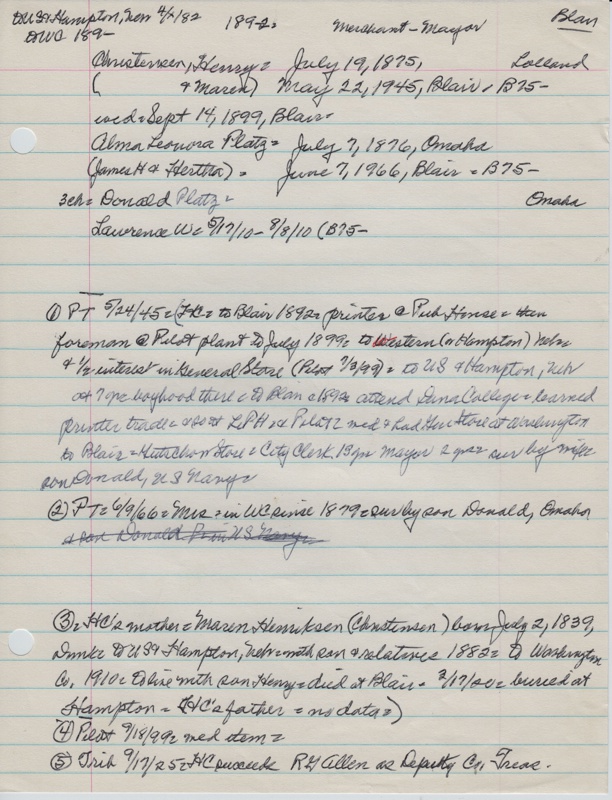 DUS & Hampton, Neb 4/-182 189-2= Merchant - Mayor Blair
DWC 189-
Christensen, Henry = July 19, 1875, Lolland
( & Maren) May 22, 1945, Blair = B75-
wed = Sept 14, 1899, Blair =
Alma Leonora Platz = July 7, 1876, Omaha
(James H & Hertha) = June 7, 1966, Blair = B75-
3ch = Donald Platz = Omaha
Lawrence W = 5/17/10 - 8/8/10 (B75-
① PT 5/24/45 = (HC = to Blair 1892 = printer @ Pub House = then
foreman @ Pilot plant to July 1899 = to Western (or Hampton) Neb
& 1/2 interest in General Store (Pilot 7/3/99) = to US & Hampton, Neb
at 7 yrs boyhood there = to Blair c 1892 attend Dana College = learned
printer trade = at LPH & Pilot = wed & had Gen Store at Washington
to Blair = Hutchson Store = City Clerk 13 yrs mayor 2 yrs = sur by wife
son Donald, US Navy =
② PT = 6/9/66 = Mrs = in WC since 1879 = sur by son Donald, Omaha
& son Donald P in US Navy =
③ = HC's mother = Maren Henriksen (Christensen) born July 2, 1839,
Dmk = to US & Hampton, Neb = with son & relatives 1882 = to Washington
Co, 1910 = to live with son Henry = died at Blair = 2/17/20 = buried at
Hampton = (HC's father = no data =)
④ Pilot 9/18/99 = wed item =
⑤ Trib 9/17/25 = HC succeeds RG Allen as Deputy Co, Treas.